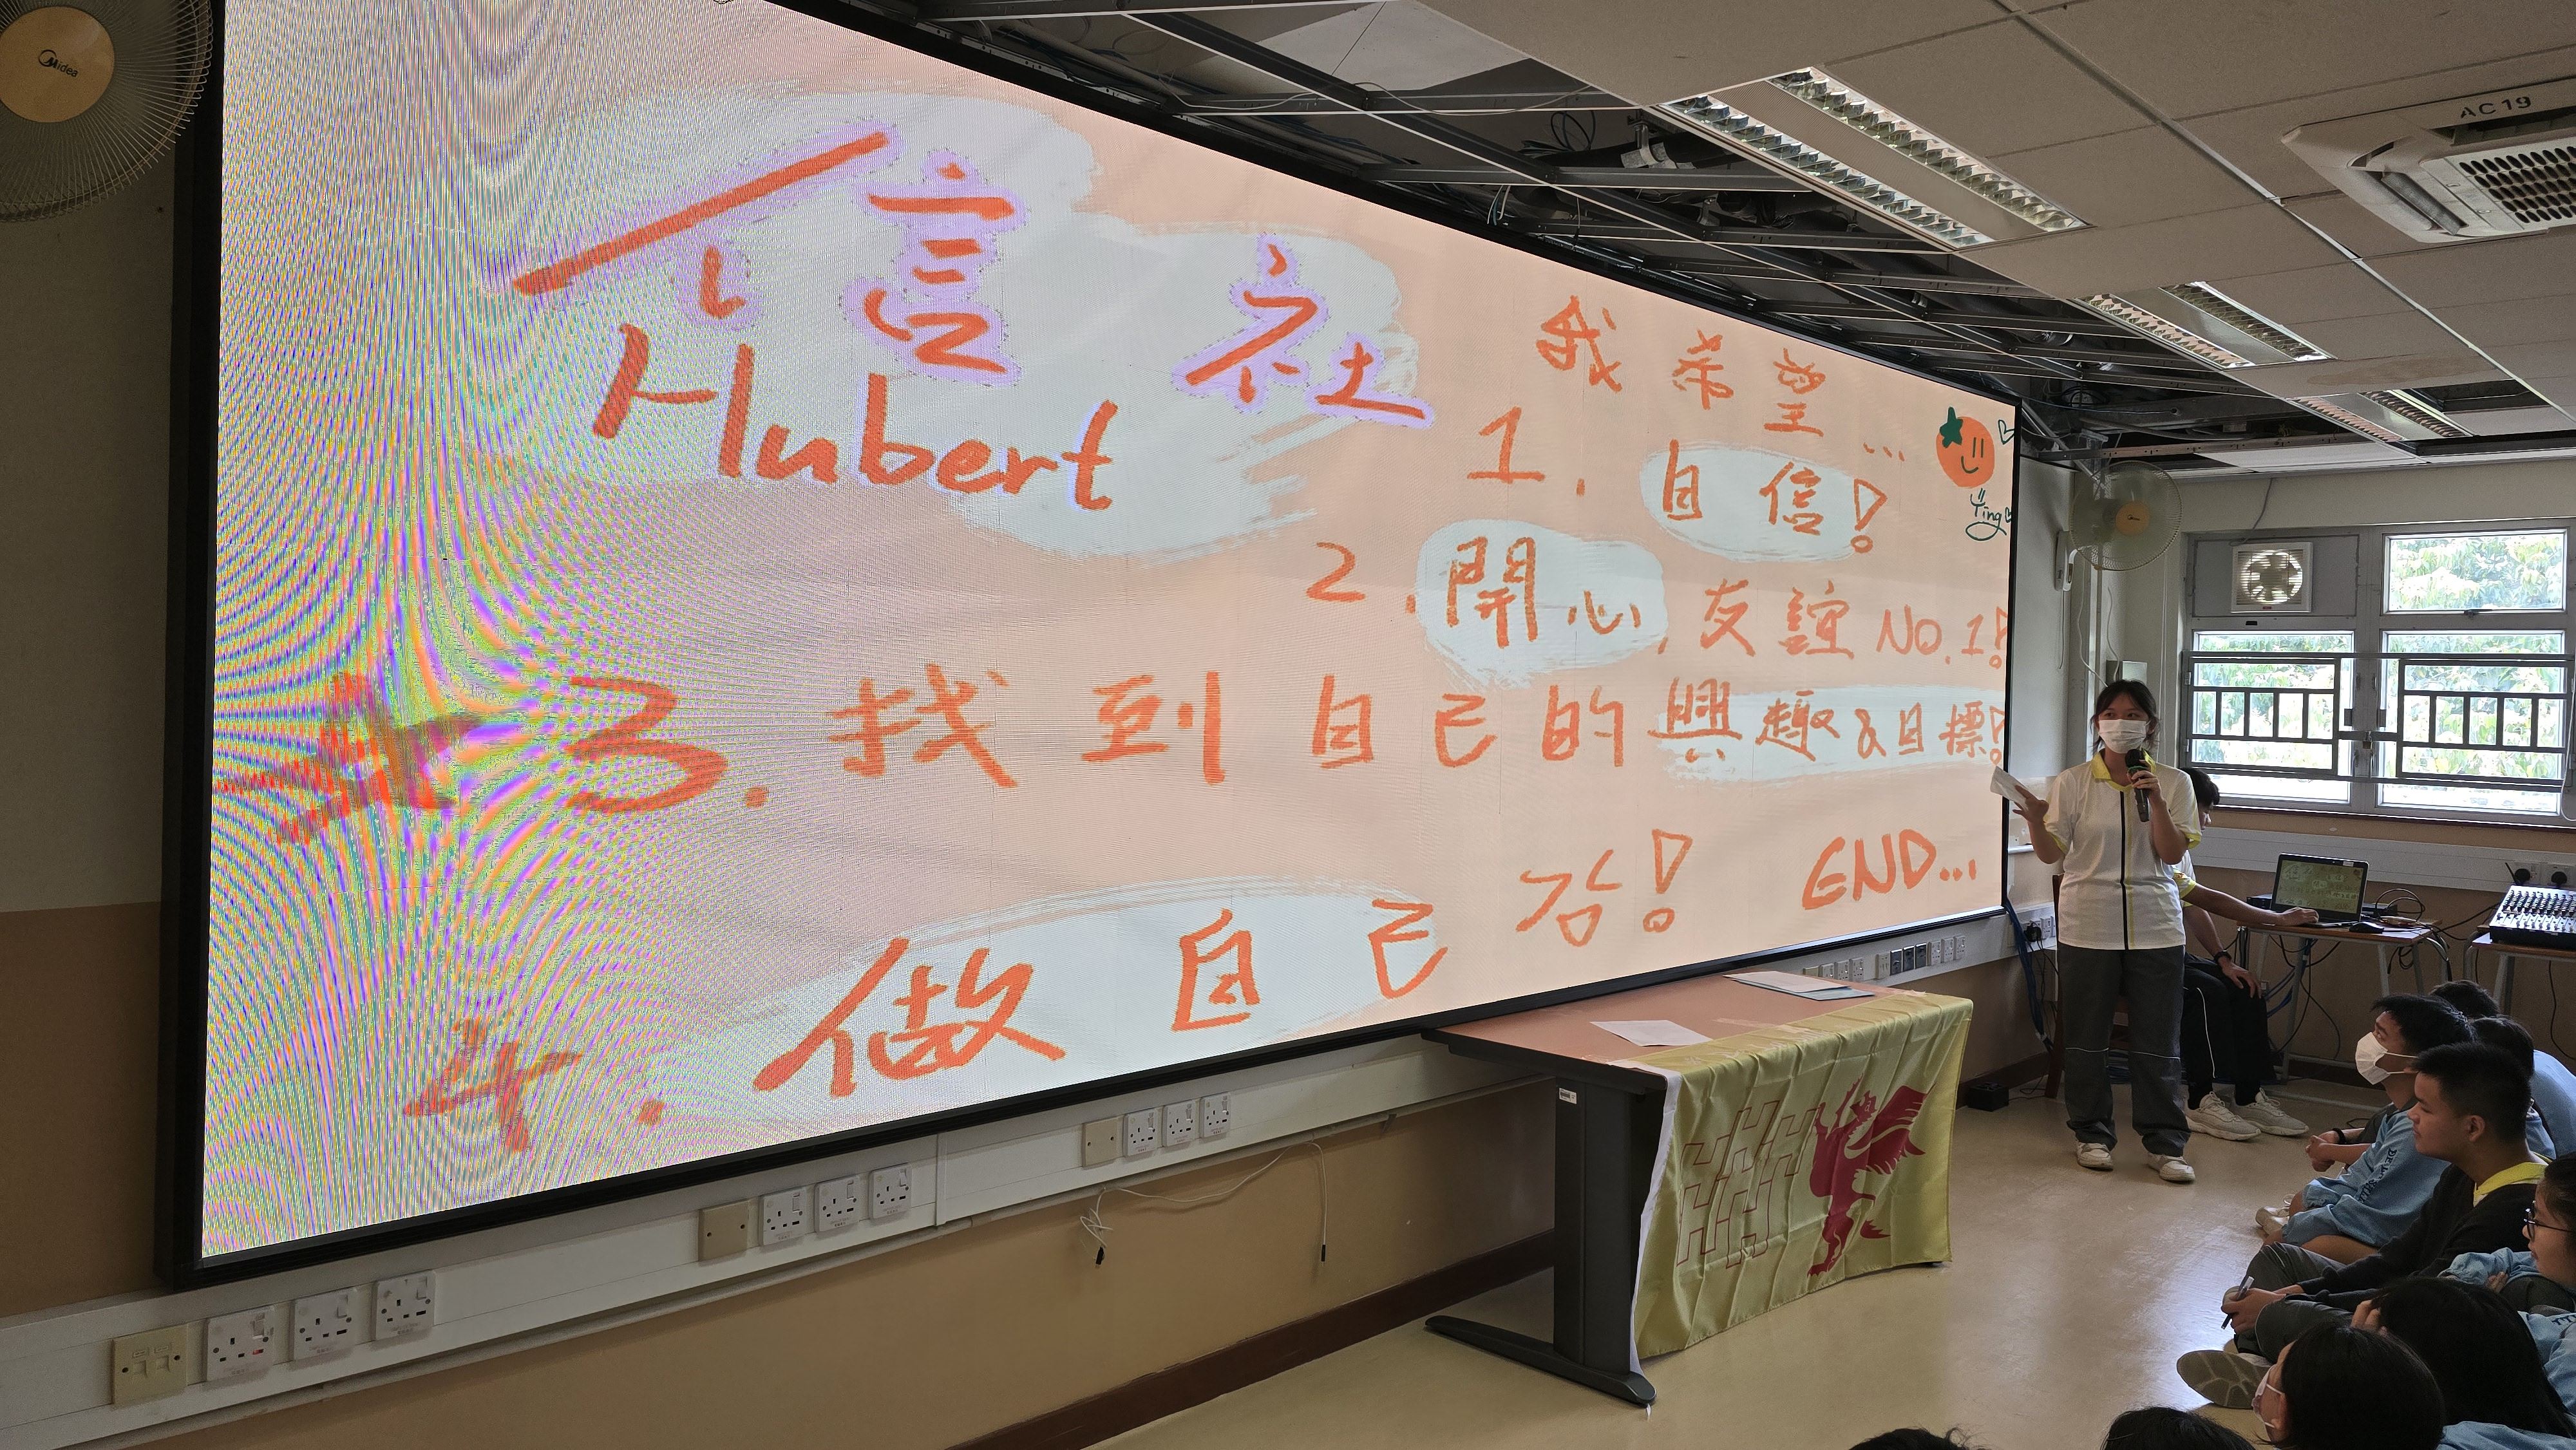 Midea
AC19
信社
Hubert
我希望...
1. 自信!
2. 開心, 友誼 No.1!
3. 找到自己的興趣&目標!
4. 做自己
END...
Ying
HHH